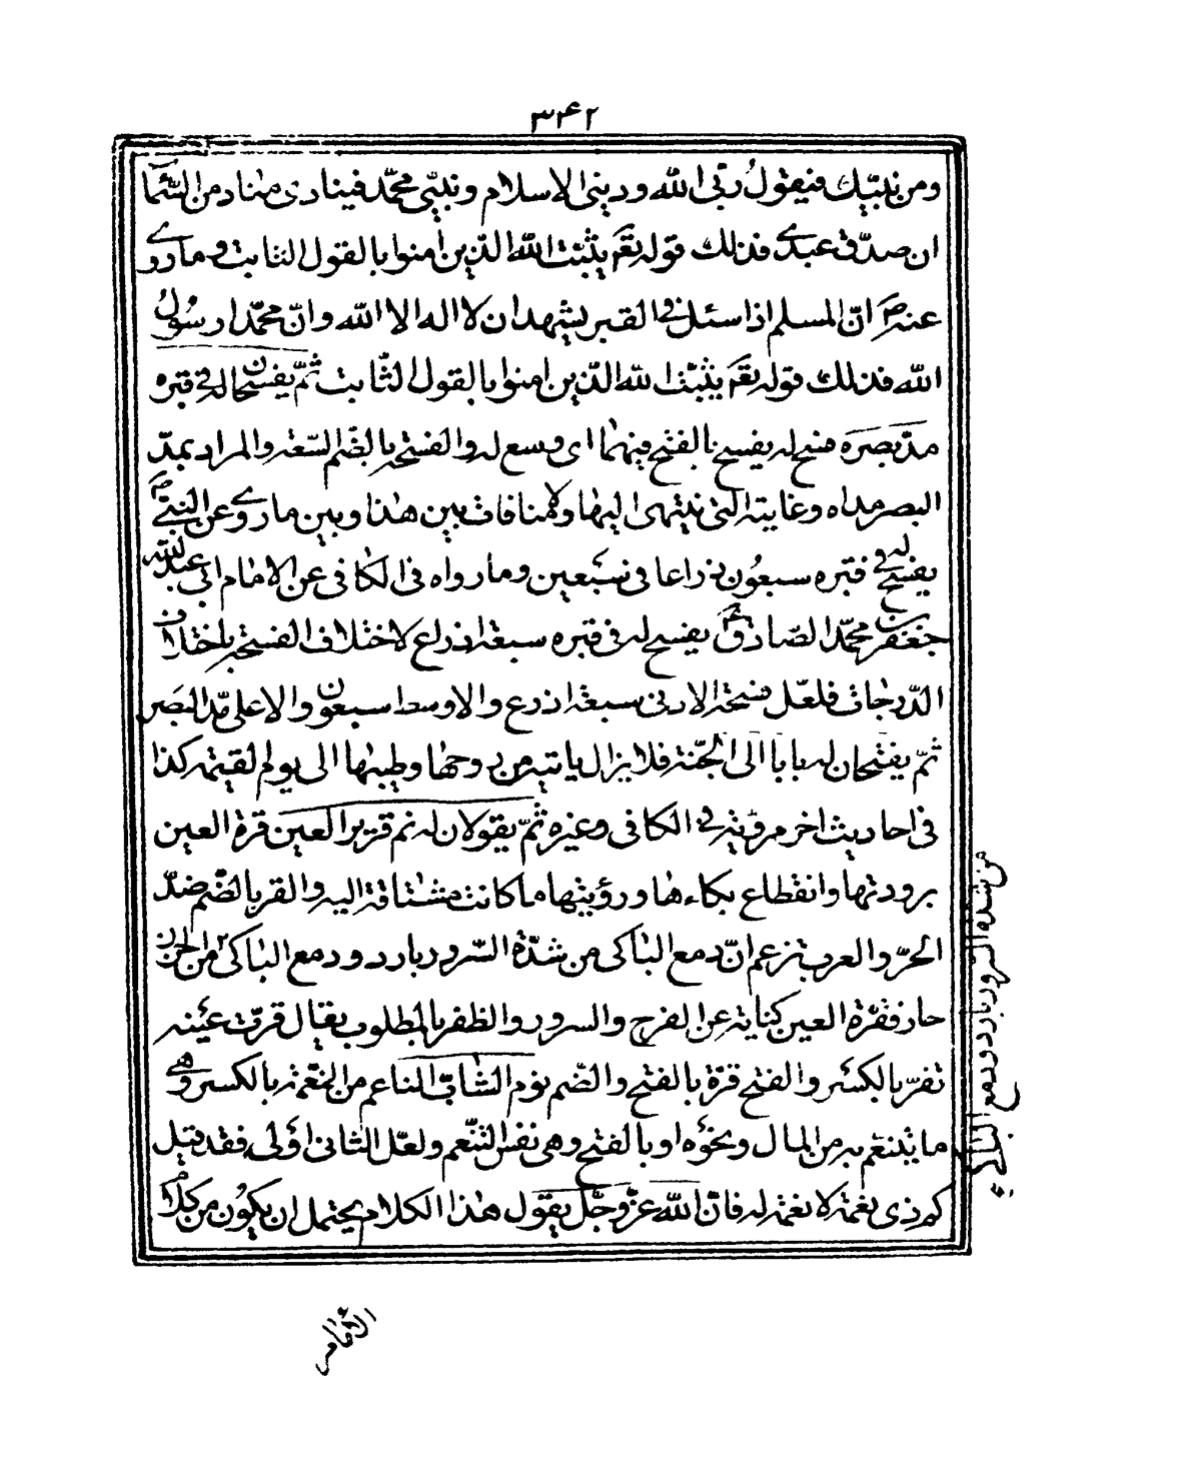 ٣٤٢
ومن نبيّك فيقول ربى الله ودينى الاسلام ونبيّى محمّد فينادى مناد من السّما
ان صدق عبدى فذلك قوله تعم يثبت الله الذين امنوا بالقول الثابت وما روى
عنه ص انّ المسلم اذا سئل فى القبر يشهد ان لا اله الا الله وانّ محمّدا رسول
الله فذلك قوله تعم يثبت الله الذين امنوا بالقول الثّابت ثمّ يفسحان له فى قبره
مدّ بصره فسح له يفسح بالفتح فيهما اى وسع له والفسحة بالضّم السّعة والمراد بمدّ
البصر مداه وغايته التى ينتهى اليها ولا منافاة بين هذا وبين ما روى عن النبى ص
يفسح له فى قبره سبعون ذراعا فى سبعين وما رواه فى الكافى عن الامام ابى عبد الله
جعفر بن محمّد الصّادق ع يفسح له فى قبره سبعة اذرع لاختلاف الفسحة باختلاف
الدّرجات فلعلّ فسحة الادنى سبعة اذرع والاوسط سبعون والاعلى مدّ البصر
ثمّ يفتحان له بابا الى الجنّة فلا يزال ياتيه من روحها وطيبها الى يوم القيمة كذا
فى احاديث اخر مرويّة فى الكافى وغيره ثمّ يقولان له نم قرير العين قرة العين
برودتها وانقطاع بكاءها ورؤيتها ما كانت مشتاقة اليه والقر بالضّم ضدّ
الحرّ والعرب تزعم انّ دمع الباكى من شدّة السّرور بارد ودمع الباكى من الحزن
حار فقرّة العين كناية عن الفرح والسرور والظفر بالمطلوب يقال قرّت عينه
تقرّ بالكسر والفتح قرّة بالفتح والضّم نوم الشابّ الناعم من النعّمة بالكسر وهى
ما يتنعّم به من المال ونحوه او بالفتح وهى نفس التنّعم ولعلّ الثانى اولى فقد قيل
كم ذى نعمة لا نعمة له فانّ الله عزّ وجّل يقول هذا الكلام يحتمل ان يكون من كلام
من شدة السرور بارد ودمع الباكى
الامام